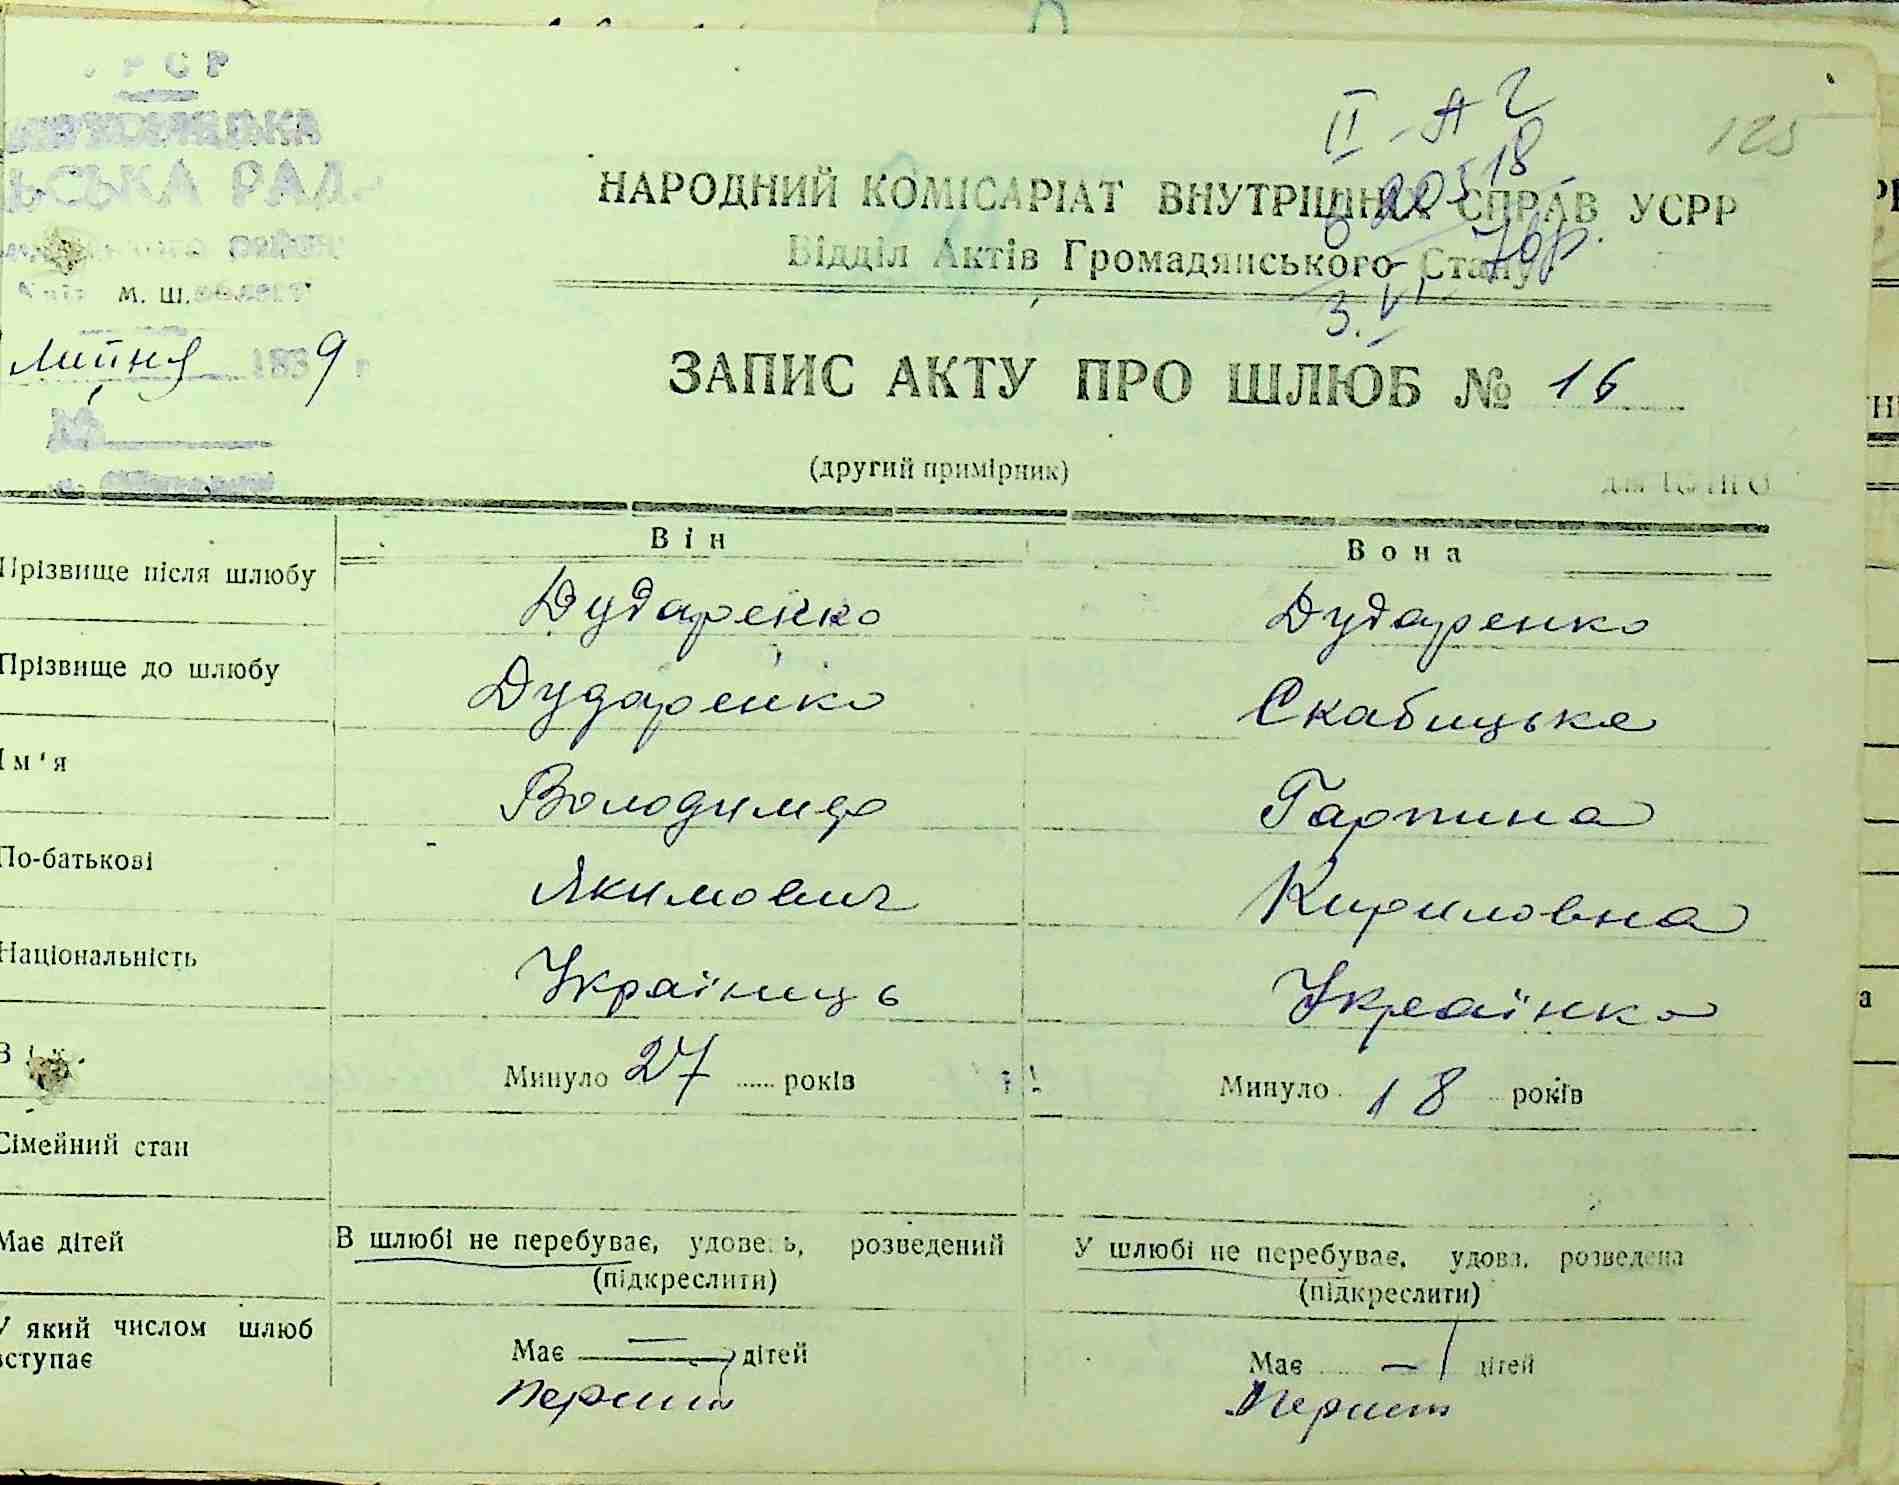 РСР
ЬСЬКА РАД
м. Ш.
липня 1939 р
II - А 2
20518
3. VI
125
НАРОДНИЙ КОМІСАРІАТ ВНУТРІШНІХ СПРАВ УСРР
Відділ Актів Громадянського Стану
ЗАПИС АКТУ ПРО ШЛЮБ № 16
(другий примірник)
Він Вона
Прізвище після шлюбу Дударенко Дударенко
Прізвище до шлюбу Дударенко Скабицька
Ім'я Володимер Гарпина
По-батькові Якимович Кириловна
Національність Українець Українка
Минуло 27 років Минуло 18 років
Сімейний стан
Має дітей В шлюбі не перебуває, удовець, розведений У шлюбі не перебуває, удова, розведена
(підкреслити) (підкреслити)
У який числом шлюб вступає Має — дітей Має — дітей
перший перший